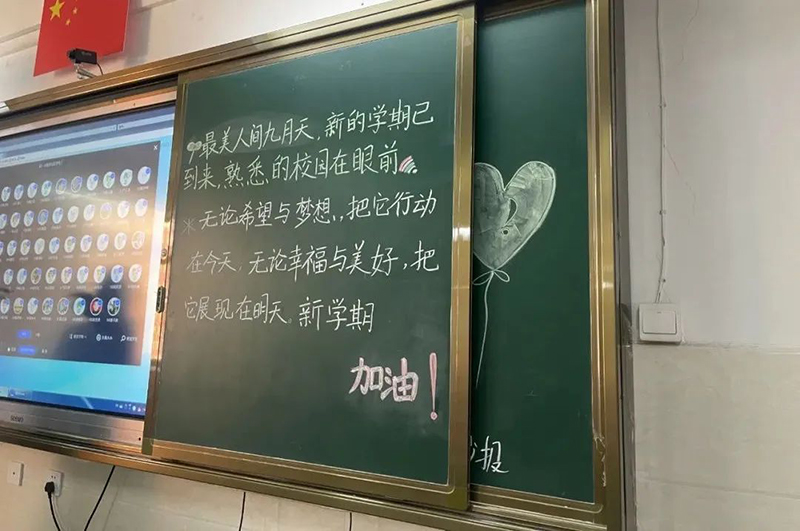 最美人间九月天,新的学期已
到来,熟悉的校园在眼前
※无论希望与梦想,把它行动
在今天,无论幸福与美好,把
它展现在明天。新学期
加油!
报